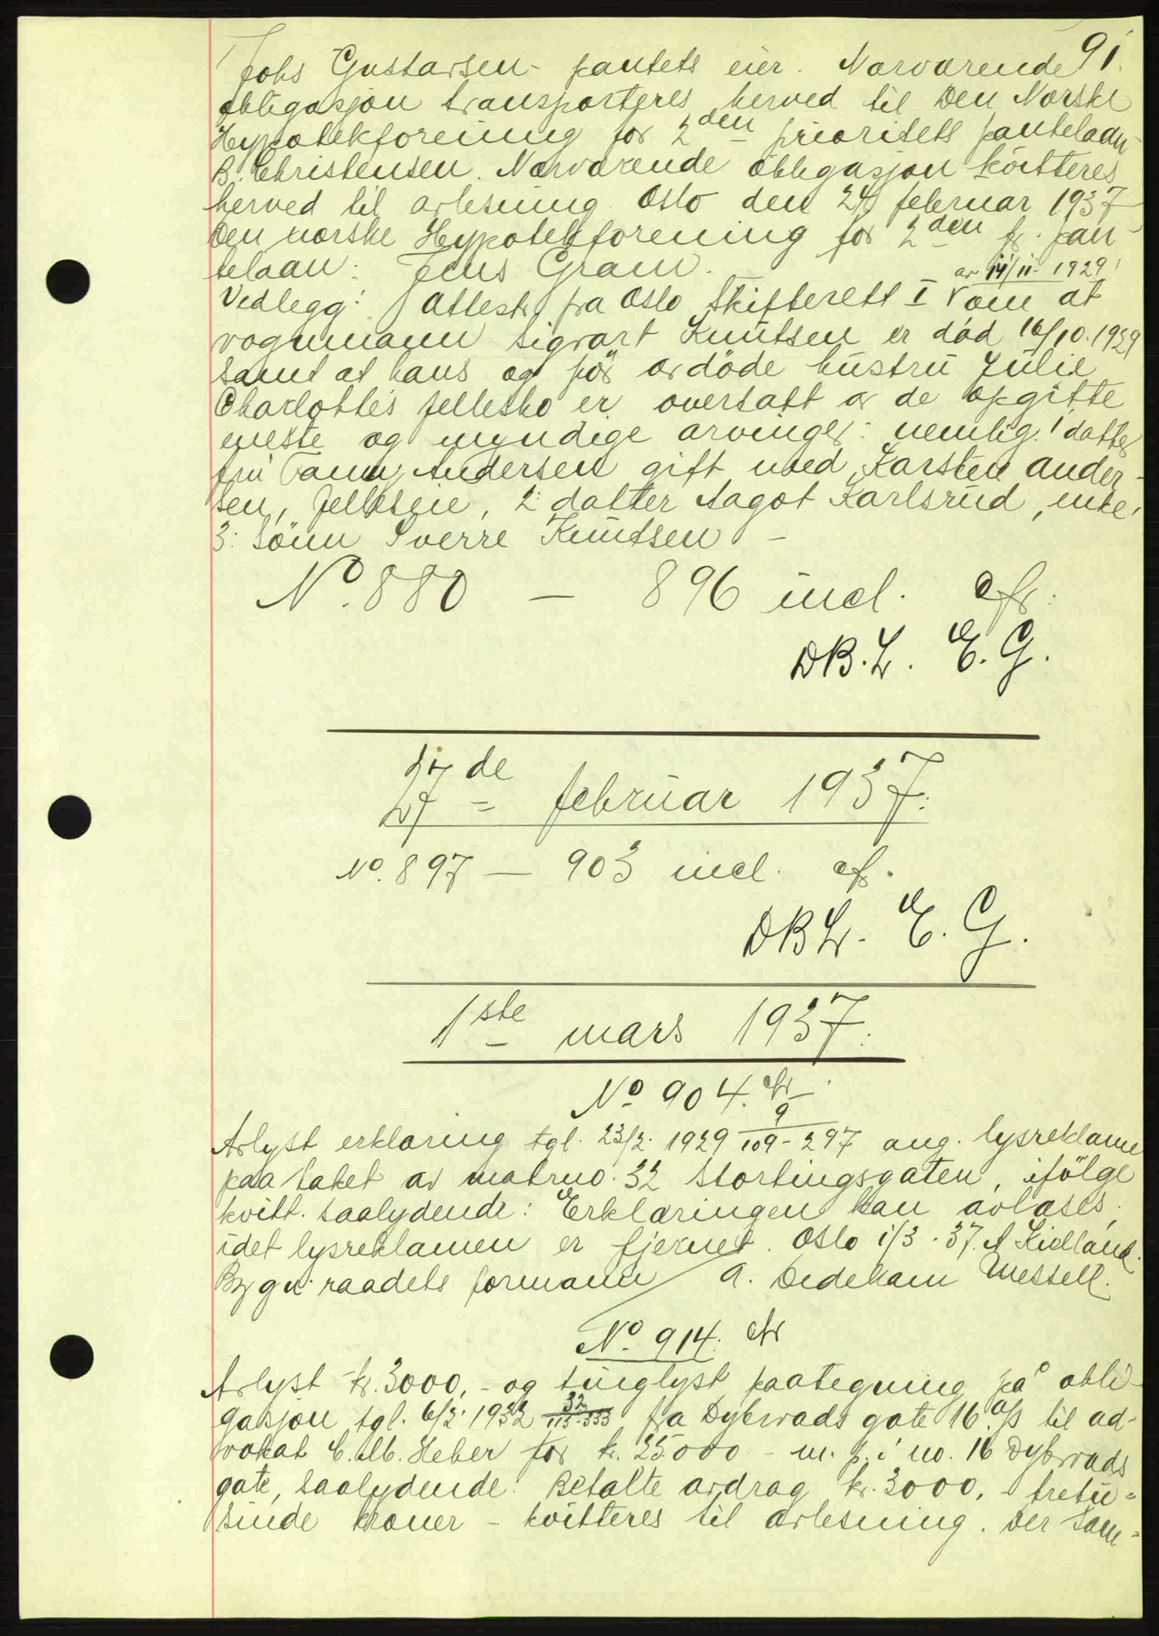 91.
Johs Gustavsen - pantets eier. Nærværende
obligasjon transporteres herved til Den Norske
Hypotekforening for 2den prioritets pantelaan
B. Christensen. Nærværende obligasjon kvitteres
herved til avlesning. Oslo den 24 februar 1937
Den norske Hypotekforening for 2den pr. pan-
telaan: Jens Gram.
av 14/11 1929
Vedlegg: Attest fra Oslo Skifterett I om at
vognmann Sigvart Knutsen er död 16/10.1929
samt at hans og för avdöde hustru Julie
Charlottes fellesbo er overtatt av de opgitte
eneste og myndige arvinger: nemlig: 1 datter
fru Fanny Andersen gift med Karsten Ander-
sen, felleseie, 2: datter Aagot Karlsrud, enke,
3: sönn Sverre Knutsen -
No. 880 - 896 incl. efr.
DB.L. E. G.
27de februar 1937.
No. 897 - 903 incl. ef.
DBL. E. G.
1ste mars 1937.
No 904.
Avlyst erklæring tgl. 23/2. 1929 9/109-297 ang. lysreklame
paa taket av matrno. 32 Stortingsgaten, ifölge
kvitt. saalydende: Erklæringen kan avlases,
idet lysreklamen er fjernet. Oslo 1/3.37. A Kielland.
Bygn. raadets formann / A. Dedekam Wessell.
No. 914.
Avlyst kr. 3000,- og tinglyst paategning på obli-
gasjon tgl. 6/2. 1932 32/115-333 fra Dybwads gate 16 A/S til ad-
vokat C. Mb. Heber for kr. 25000 - m. p. i no. 16 Dybwads
gate, saalydende: Betalte avdrag kr. 3000,- tretu-
sinde kroner - kvitteres til avlesning. Der sam-